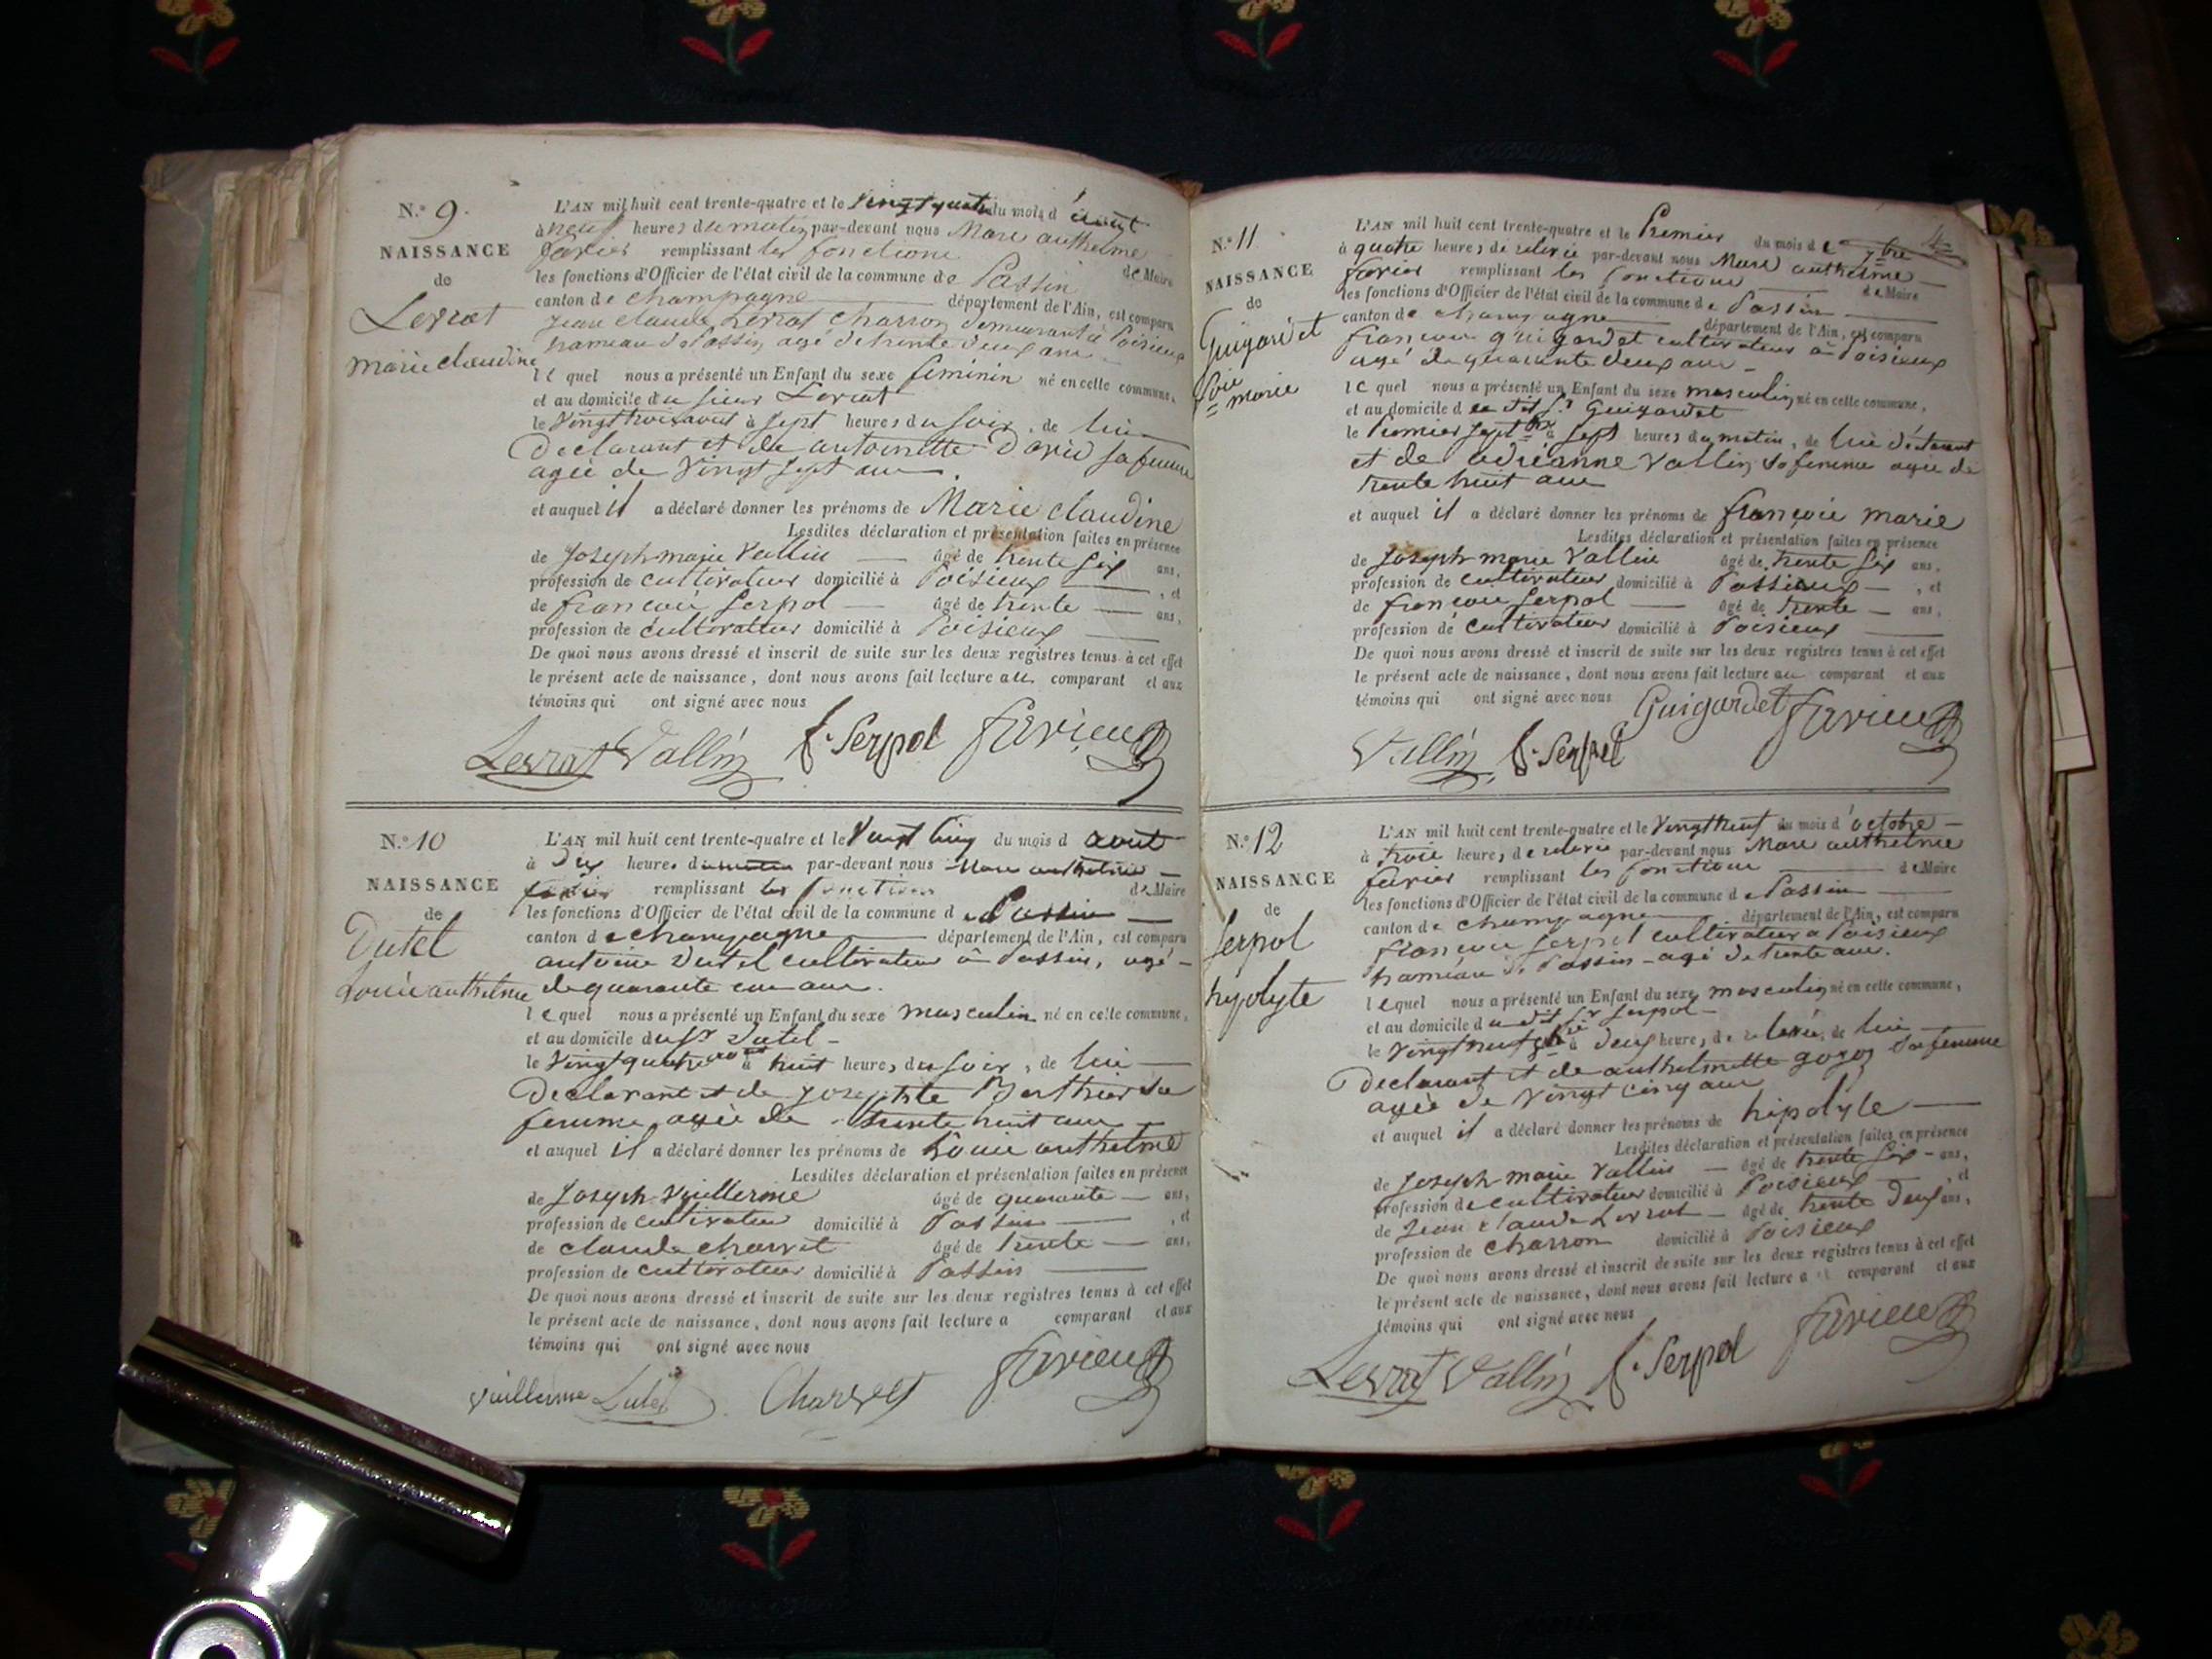 N.° 9.
NAISSANCE
de
Levrat
marie claudine
L'AN mil huit cent trente-quatre et le Vingt quatre du mois d'aout
à neuf heures du matin par-devant nous Marc anthelme
favier remplissant les fonctions de Maire
les fonctions d'Officier de l'état civil de la commune de Passin
canton de champagne département de l'Ain, est comparu
Jean claude Levrat charron demeurant à Poisieux
hameau de Passin agé de trente deux ans
lequel nous a présenté un Enfant du sexe feminin né en cette commune,
et au domicile du sieur Levrat
le Vingt trois aout à sept heures du soir, de lui
Declarant et de antoinette David sa femme
agée de Vingt sept ans
et auquel il a déclaré donner les prénoms de Marie claudine
Lesdites déclaration et présentation faites en présence
de Joseph marie Vallin âgé de trente six ans,
profession de cultivateur domicilié à Poisieux , et
de francois Serpol âgé de trente ans,
profession de cultivateur domicilié à Poisieux
De quoi nous avons dressé et inscrit de suite sur les deux registres tenus à cet effet
le présent acte de naissance, dont nous avons fait lecture au comparant et aux
témoins qui ont signé avec nous
Levrat Vallin f. Serpol favier
N.° 10
NAISSANCE
de
Dutel
Louis anthelme
L'AN mil huit cent trente-quatre et le Vingt cinq du mois d aout
à Dix heures du matin par-devant nous Marc anthelme
favier remplissant les fonctions de Maire
les fonctions d'Officier de l'état civil de la commune de Passin
canton de champagne département de l'Ain, est comparu
antoine Dutel cultivateur à Passin, agé
de quarante un ans.
lequel nous a présenté un Enfant du sexe masculin né en cette commune,
et au domicile du sr Dutel
le Vingt quatre aout à huit heures du soir, de lui
Declarant et de josephte Berthier sa
femme agée de trente huit ans
et auquel il a déclaré donner les prénoms de Louis anthelme
Lesdites déclaration et présentation faites en présence
de Joseph Vuillerme âgé de quarante ans,
profession de cultivateur domicilié à Passin , et
de claude charvet âgé de trente ans,
profession de cultivateur domicilié à Passin
De quoi nous avons dressé et inscrit de suite sur les deux registres tenus à cet effet
le présent acte de naissance, dont nous avons fait lecture a comparant et aux
témoins qui ont signé avec nous
Vuillerme Dutel Charvet favier
N.° 11
NAISSANCE
de
Guigardet
marie
L'AN mil huit cent trente-quatre et le Premier du mois de 7bre
à quatre heures de relevée par-devant nous Marc anthelme
favier remplissant les fonctions de Maire
les fonctions d'Officier de l'état civil de la commune de Passin
canton de champagne département de l'Ain, est comparu
francois guigardet cultivateur à Poisieux
agé de quarante deux ans
lequel nous a présenté un Enfant du sexe masculin né en cette commune,
et au domicile du dit Sr Guigardet
le Premier Septbre à Sept heures du matin, de lui déclarant
et de adrianne Vallin sa femme agée de
trente huit ans
et auquel il a déclaré donner les prénoms de françois marie
Lesdites déclaration et présentation faites en présence
de Joseph marie Vallin âgé de trente six ans,
profession de cultivateur domicilié à Poisieux , et
de francois Serpol âgé de trente ans,
profession de cultivateur domicilié à Poisieux
De quoi nous avons dressé et inscrit de suite sur les deux registres tenus à cet effet
le présent acte de naissance, dont nous avons fait lecture au comparant et aux
témoins qui ont signé avec nous Guigardet favier
Vallin f. Serpol
N.° 12
NAISSANCE
de
Serpol
hypolyte
L'AN mil huit cent trente-quatre et le Vingt neuf du mois d'octobre
à trois heures de relevée par-devant nous Marc anthelme
favier remplissant les fonctions de Maire
les fonctions d'Officier de l'état civil de la commune de Passin
canton de champagne département de l'Ain, est comparu
francois Serpol cultivateur à Poisieux
hameau de Passin agé de trente ans.
lequel nous a présenté un Enfant du sexe masculin né en cette commune,
et au domicile du dit sr Serpol
le Vingt neuf à Deux heures de relevée, de lui
Declarant et de anthelmette gogoz sa femme
agée de Vingt cinq ans
et auquel il a déclaré donner les prénoms de hipolyte
Lesdites déclaration et présentation faites en présence
de Joseph marie Vallin âgé de trente six ans,
profession de cultivateur domicilié à Poisieux , et
de Jean claude Levrat âgé de trente Deux ans,
profession de charron domicilié à Poisieux
De quoi nous avons dressé et inscrit de suite sur les deux registres tenus à cet effet
le présent acte de naissance, dont nous avons fait lecture a comparant et aux
témoins qui ont signé avec nous
Levrat Vallin f. Serpol favier